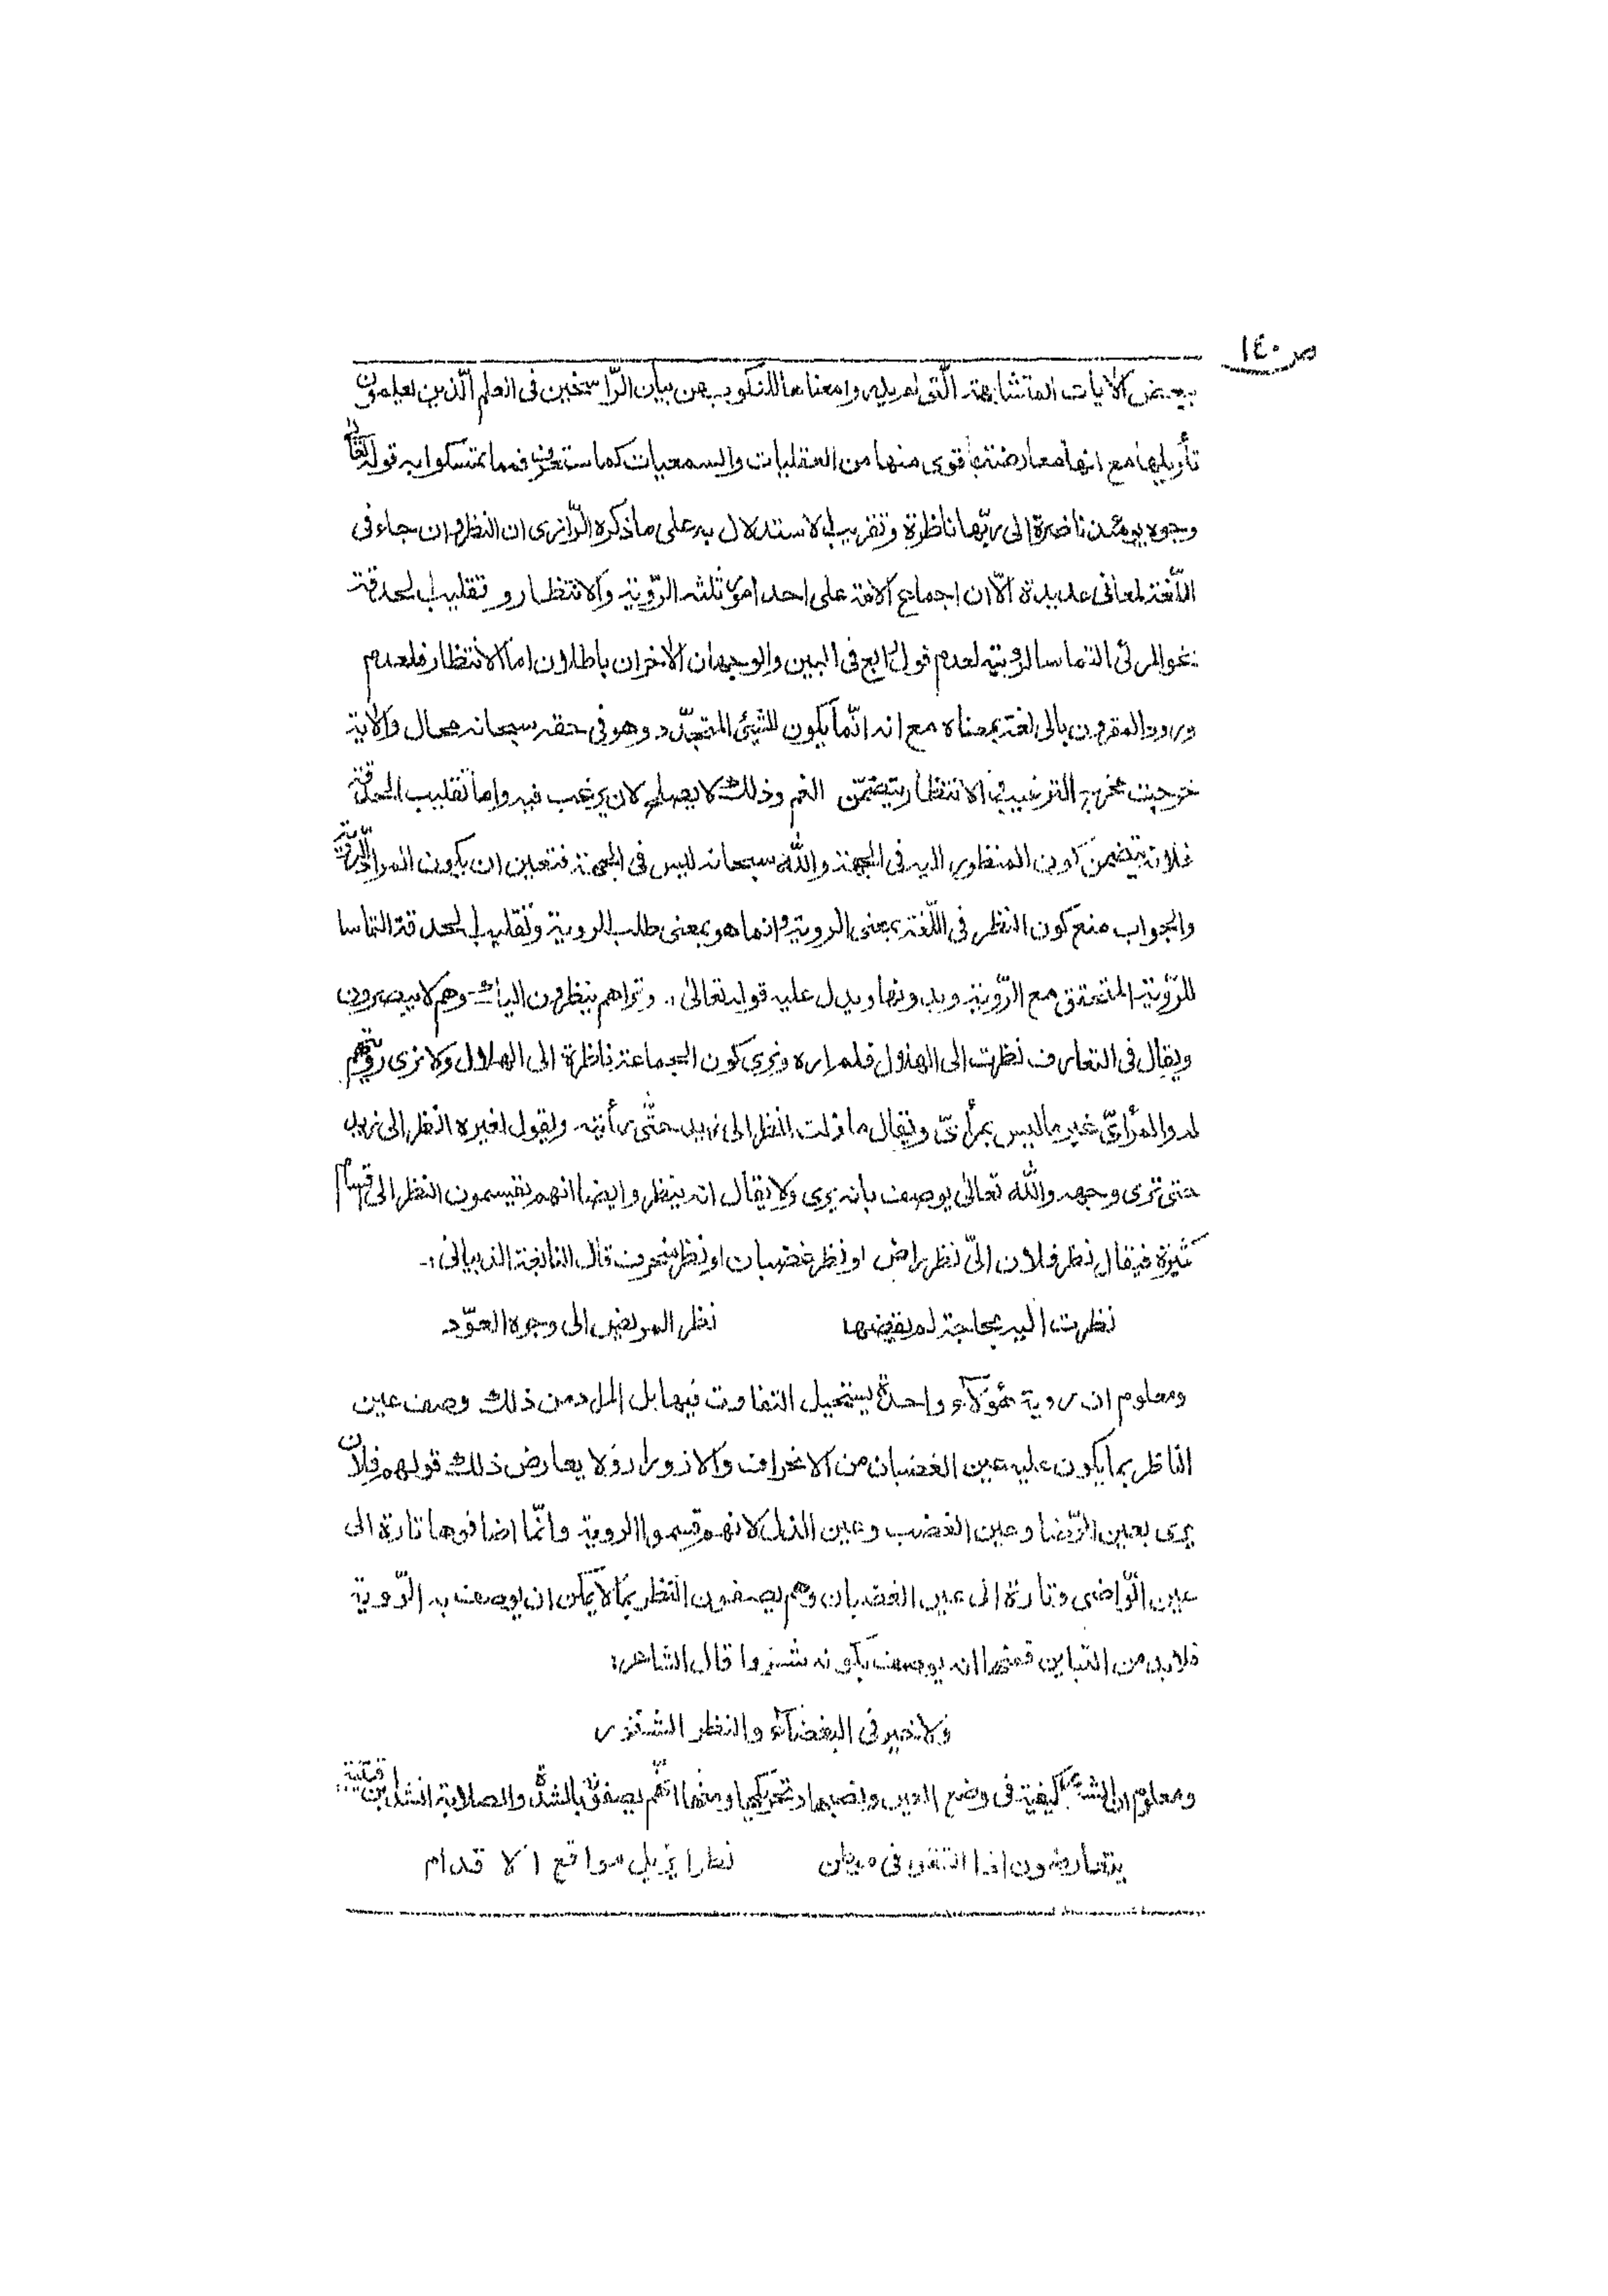 ص ١٤٠
ببعض الآيات المتشابهة الّتى لم يدروا معناها للنكوب عن بيان الرّاسخين فى العلم الّذين يعلمون
تأويلها مع انها معارضة باقوى منها من العقليات والسمعيات كما ستعرف فمما تمسكوا به قوله تعالى
وجوه يومئذ ناضرة الى ربّها ناظرة وتقريب الاستدلال به على ما ذكره الرّازى ان النظر وان جاء فى
اللّغة لمعانى عديدة الّا ان اجماع الامة على احد امور ثلثه الرّوية والانتظار و تقليب الحدقة
نحو المرئى التماسا للروية لعدم قول رابع فى البين والوجهان الاخران باطلان اما الانتظار فلعدم
ورود المقرون بالى لغة بمعناه مع انه انّما يكون للشيئ المتجدّد وهو فى حقه سبحانه محال والآية
خرجت مخرج الترغيب فى الانتظار يتضمّن الغم وذلك لا يصلح لان يرغب فيه واما تقليب الحدقة
فلانه يتضمن كون المنظور اليه فى الجهة واللّٰه سبحانه ليس فى الجهة فتعين ان يكون المراد الرّوية
والجواب منع كون النظر فى اللّغة بمعنى الروية وانما هو بمعنى طلب الروية وتقليب الحدقة التماسا
للرّوية المتحقق مع الرّوية وبدونها ويدل عليه قوله تعالى :. وتراهم ينظرون اليك وهم لا يبصرون
ويقال فى التعارف نظرت الى الهلال فلم اره ونرى كون الجماعة ناظرة الى الهلال ولا نرى رويتهم
له والمرأىّ غير ما ليس بمرأىّ ويقال ما زلت انظر الى زيد حتّى رأيته ويقول لغيره انظر الى زيد
حتى ترى وجهه واللّٰه تعالى يوصف بانه يرى ولا يقال انه ينظر وايضا انهم يقسمون النظر الى اقسام
كثيرة فيقال نظر فلان الىّ نظر راض او نظر غضبان او نظر منحرف قال النابغة الذبيانى :-
نظرت اليه بحاجة لم يقضها نظر المريض الى وجوه العوّد
ومعلوم ان روية هؤلاء واحدة يستحيل التفاوت فيها بل المراد من ذلك وصف عين
الناظر بما يكون عليه عين الغضبان من الانحراف والازورار ولا يعارض ذلك قولهم فلان
يرى بعين الرّضا وعين الغضب وعين الذل لانهم قسموا الروية وانّما اضافوها تارة الى
عين الرّاضى وتارة الى عين الغضبان وهم يصفون النظر بما لا يمكن ان يوصف به الرّوية
فلابد من التباين فمنها انه يوصف بكونه شزرا قال الشاعر:
ولا خير فى البغضاء والنظر الشزر
ومعلوم ان الشزر كيفية فى وضع العين ونصبها وتحريكها ومنها انهم يصفونه بالشدّة والصلابة انشد ابن قتيبة
يتقارضون اذا التقوا فى موطن نظرا يزيل مواقع الاقدام